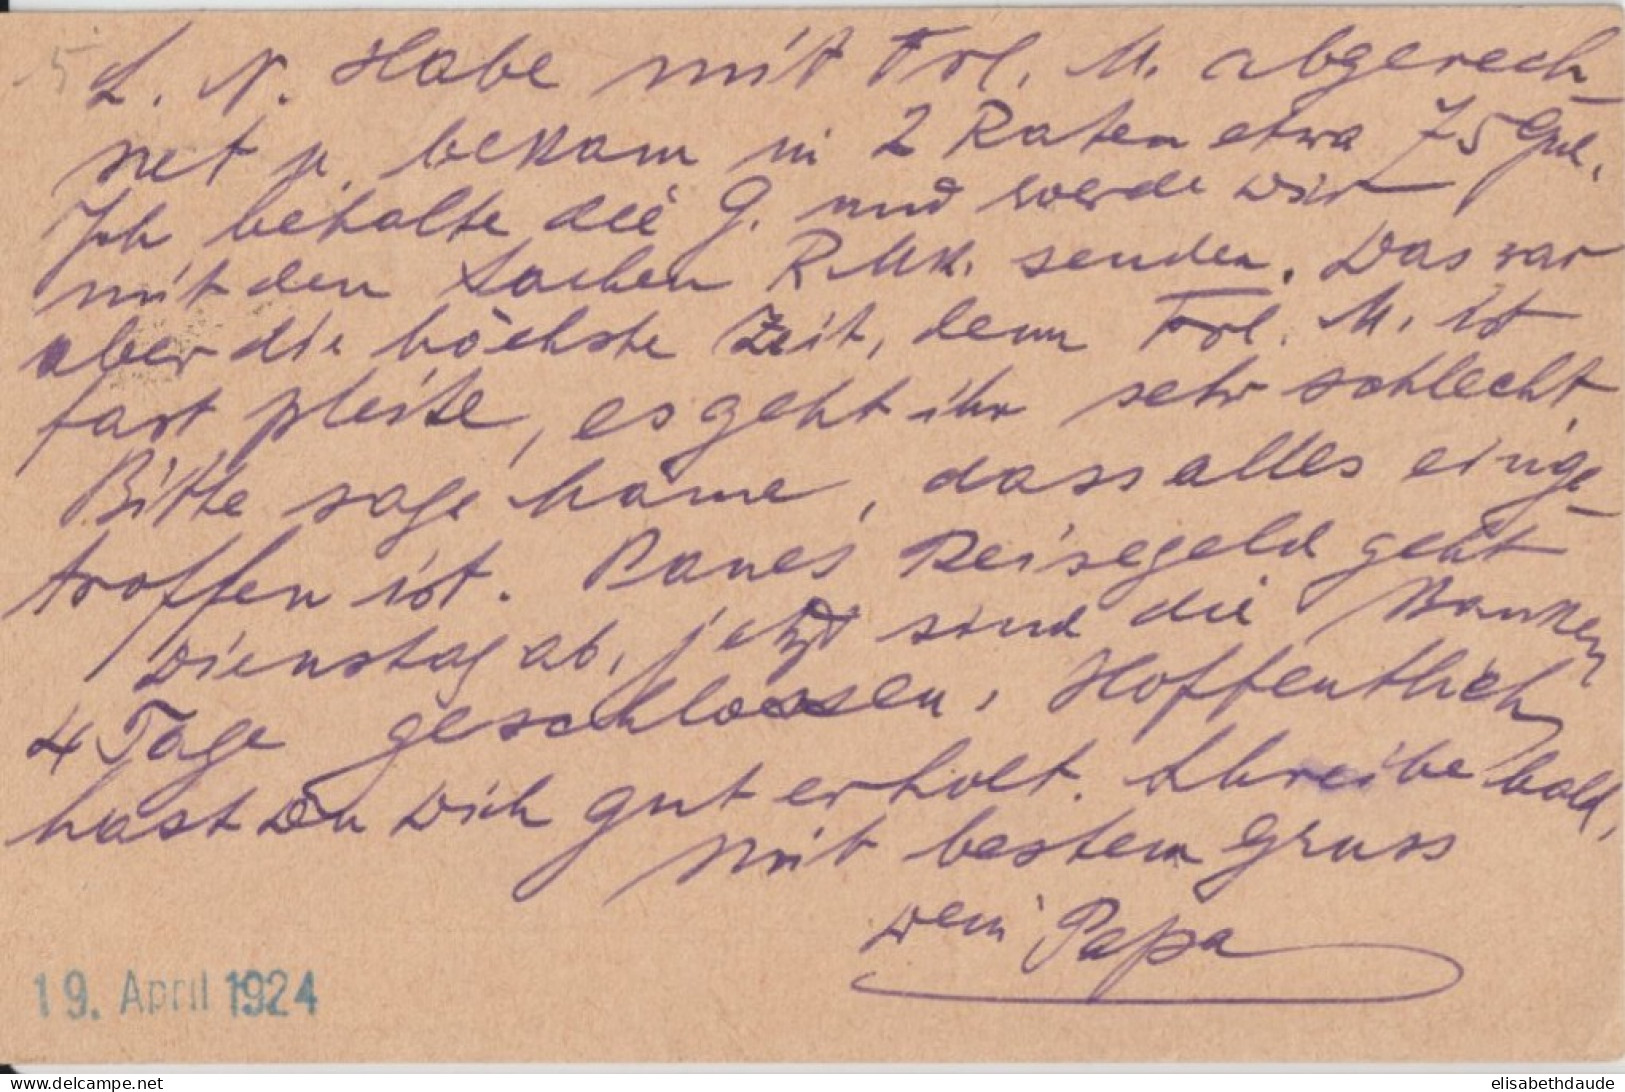 L. N. Habe mit Frl. M. abgerech-
net u. bekam in 2 Raten etwa 75 Gul.
Ich behalte die G. und werde Dir
mit den Sachen R. Mk. senden. Das war
aber die höchste Zeit, denn Frl. M. ist
fast pleite, es geht ihr sehr schlecht.
Bitte sage, dass alles einge-
troffen ist. Reisegeld geht
Dienstag ab, jetzt sind die Banken
4 Tage geschlossen. Hoffentlich
hast Du Dich gut erholt. Schreibe bald,
mit bestem Gruss
Dein Papa
19. April 1924
https://www.delcampe.net
elisabethdaude